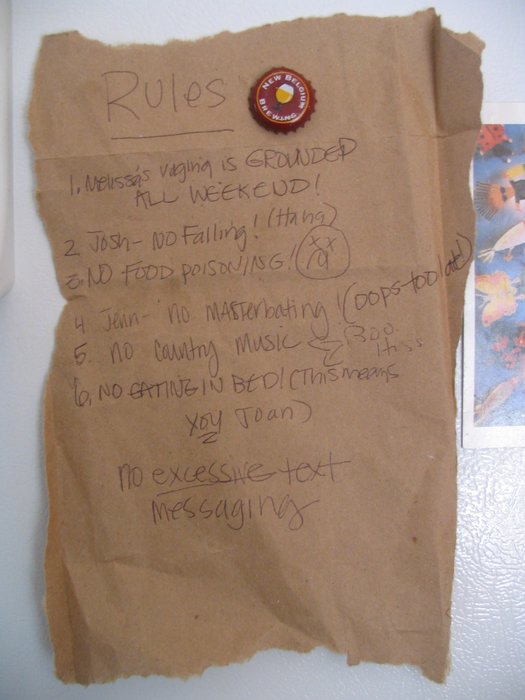 Rules
NEW BELGIUM
BREWING
1. Melissa's vagina is GROUNDED
ALL WEEKEND!
2. Josh - NO Falling! (Haha)
3. NO FOOD POISONING!
4. Jenn - no masterbating! (oops-too late)
5. no country music Boo
Hiss
6. NO EATING IN BED! (This means
YOU Joan)
no excessive text
messaging